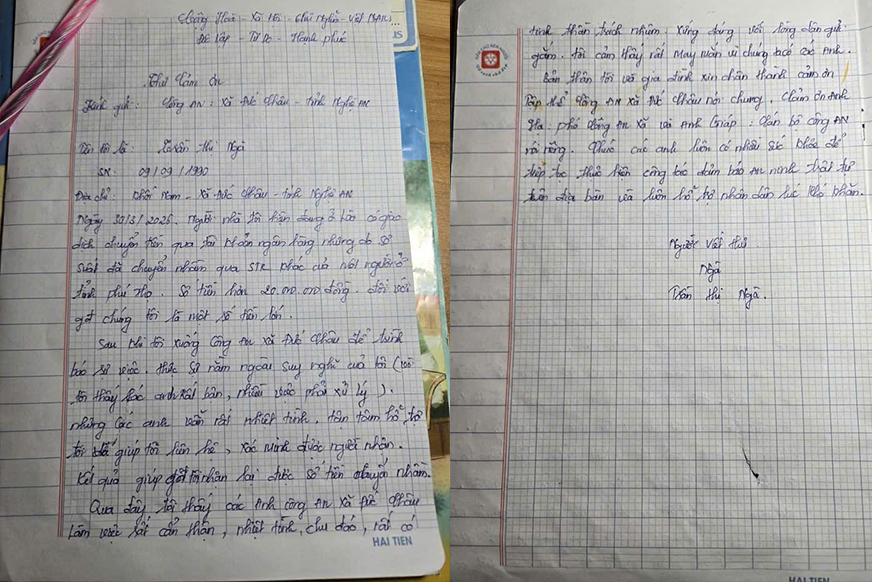 Cộng Hoà - Xã Hội - Chủ Nghĩa - Việt Nam
Độc Lập - Tự Do - Hạnh phúc
Thư Cảm Ơn
Kính gửi: Công AN: Xã Đức Châu - tỉnh Nghệ AN
Tên tôi là: Trần Thị Ngà
SN: 09/09/1990
Địa chỉ: Khối Nam - Xã Đức Châu - tỉnh Nghệ AN
Ngày 30/3/2026. Người nhà tôi hiện đang ở có giao
dịch chuyển tiền qua tài khoản ngân hàng nhưng do sơ
suất đã chuyển nhầm qua STK khác của một người ở
tỉnh phú thọ. Số tiền hơn 20.000.000 đồng. đối với
gđ chúng tôi là một số tiền lớn.
Sau khi tôi xuống Công AN xã Đức Châu để trình
báo sự việc. thực sự nằm ngoài suy nghĩ của tôi (vì
tôi thấy các anh rất bận, nhiều việc phải xử lý).
nhưng các anh vẫn rất nhiệt tình, tận tâm hỗ trợ
tôi để giúp tôi liên hệ, xác minh được người nhận.
Kết quả giúp gđ tôi nhận lại được số tiền chuyển nhầm.
Qua đây tôi thấy các Anh công AN Xã Đức Châu
làm việc rất cẩn thận, nhiệt tình, chu đáo, rất có
HAI TIEN
tinh thần trách nhiệm. Xứng đáng với lòng dân gửi
gắm. tôi cảm thấy rất may mắn vì chúng ta có các Anh.
Bản thân tôi và gia đình xin chân thành cảm ơn
tập thể Công AN Xã Đức Châu nói chung. Cảm ơn Anh
Hà: phó Công AN Xã và Anh Giáp: Cán bộ công AN
nói riêng. Chúc các anh luôn có nhiều sức khỏe để
tiếp tục thực hiện công tác đảm bảo AN ninh trật tự
trên địa bàn và luôn hỗ trợ nhân dân lúc khó khăn.
Người viết thư
Ngà
Trần Thị Ngà.
HAI TIEN